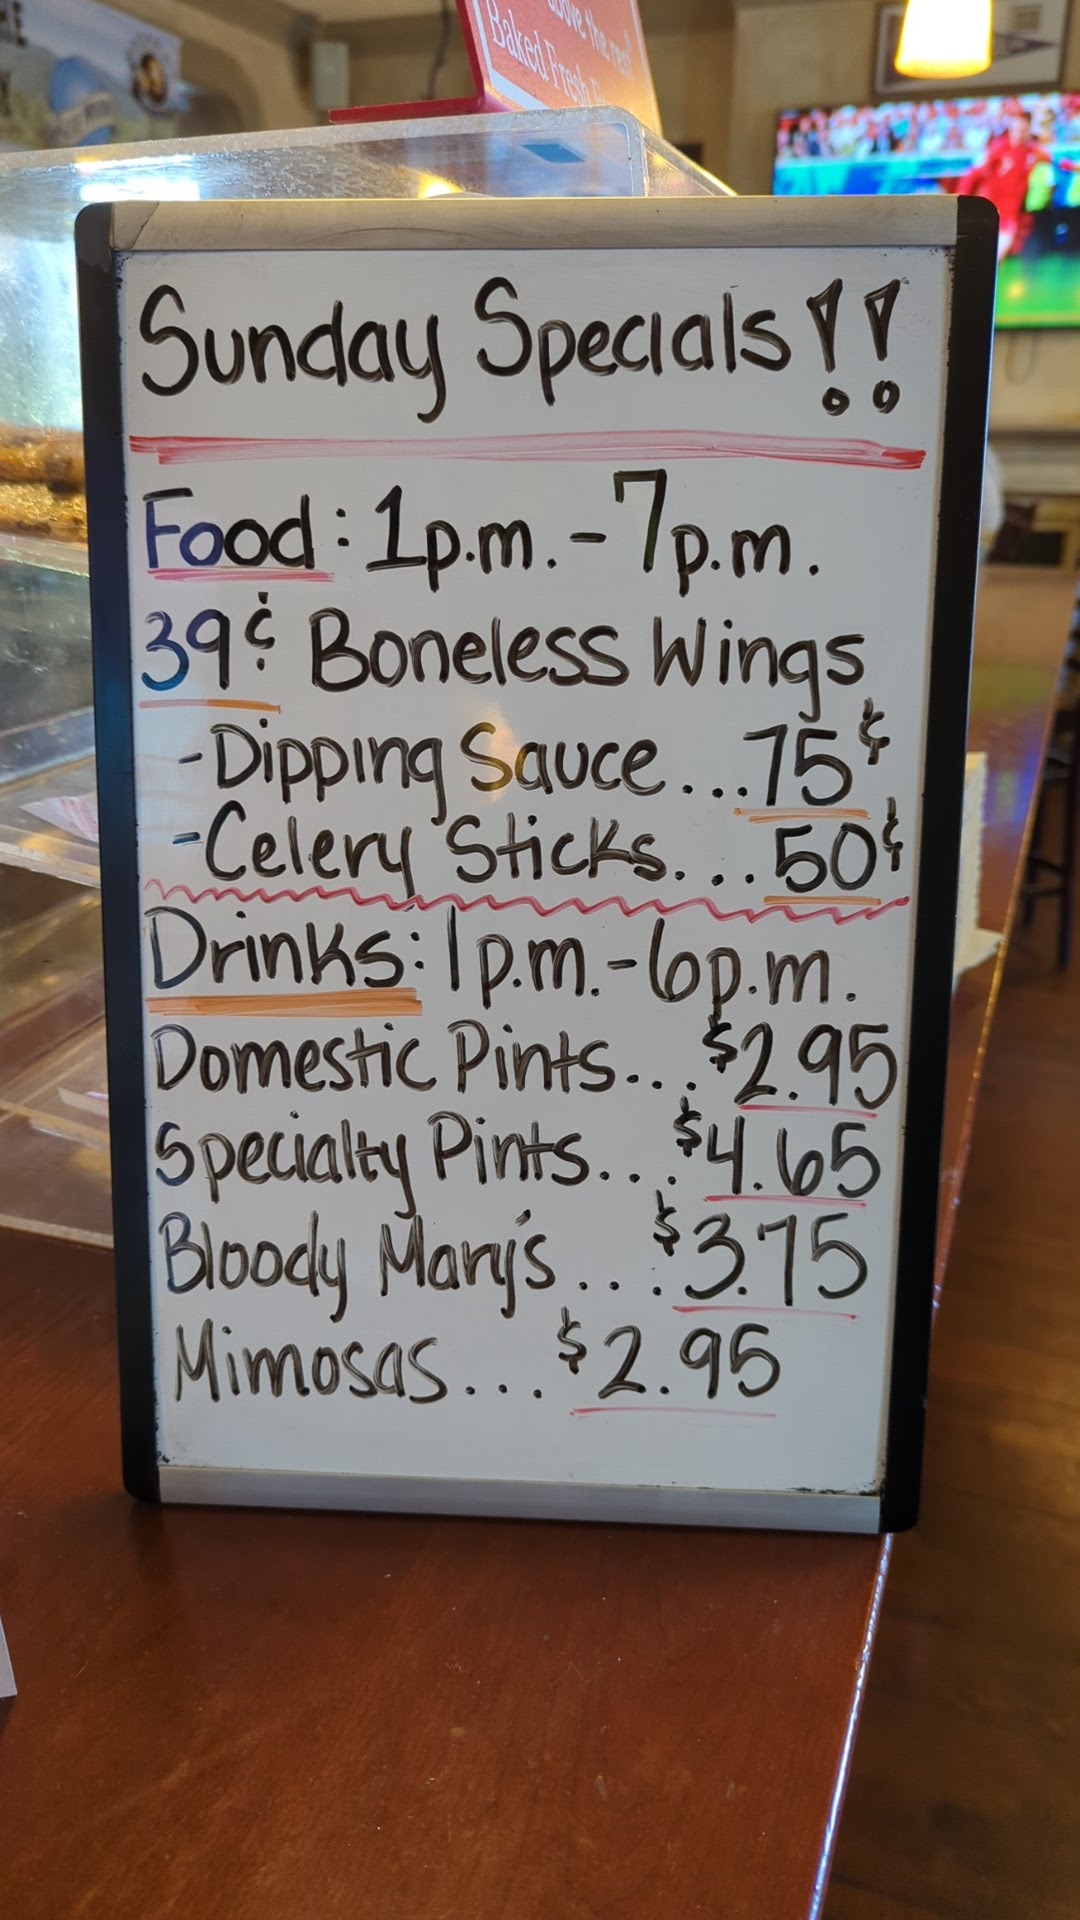 above the rest
Baked Fresh
Sunday Specials!!
Food: 1p.m. - 7p.m.
39¢ Boneless Wings
- Dipping Sauce...75¢
- Celery Sticks...50¢
Drinks: 1p.m. - 6p.m.
Domestic Pints...$2.95
Specialty Pints...$4.65
Bloody Mary's...$3.75
Mimosas...$2.95